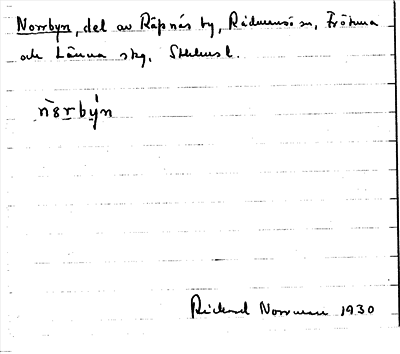 Norrbyn, del av Räpnäs by, Rådmansö sn, Frötuna
och Länna skg. Sthlms l.
nòrbýn
Rickard Norrman 1930